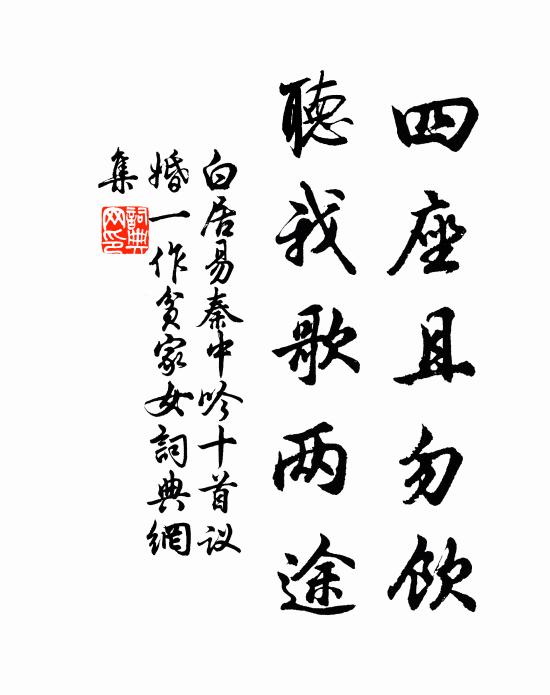 四座且勿饮
聽我歌两途
白居易秦中吟十首议
婚一作贫家女詞典網
集
詞典
网印